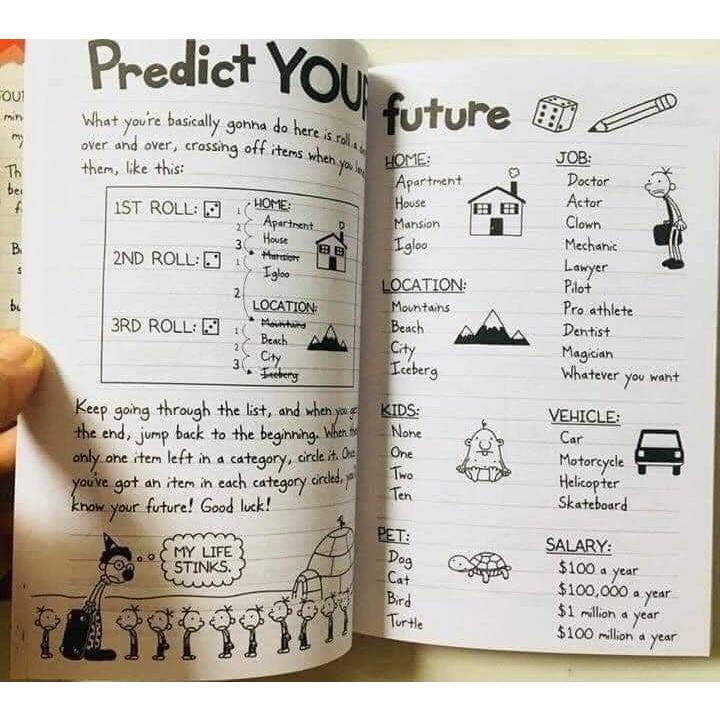 Predict YOUR future
What you're basically gonna do here is roll a
over and over, crossing off items when you
them, like this:
1ST ROLL:
2ND ROLL:
3RD ROLL:
HOME:
1 Apartment
2 House
3 Mansion
1 Igloo
2 LOCATION:
Mountains
1 Beach
2 City
3 Iceberg
Keep going through the list, and when you
the end, jump back to the beginning. When
only one item left in a category, circle it. Once
you've got an item in each category circled,
know your future! Good luck!
MY LIFE
STINKS.
HOME:
Apartment
House
Mansion
Igloo
LOCATION:
Mountains
Beach
City
Iceberg
KIDS:
None
One
Two
Ten
PET:
Dog
Cat
Bird
Turtle
JOB:
Doctor
Actor
Clown
Mechanic
Lawyer
Pilot
Pro athlete
Dentist
Magician
Whatever you want
VEHICLE:
Car
Motorcycle
Helicopter
Skateboard
SALARY:
$100 a year
$100,000 a year
$1 million a year
$100 million a year